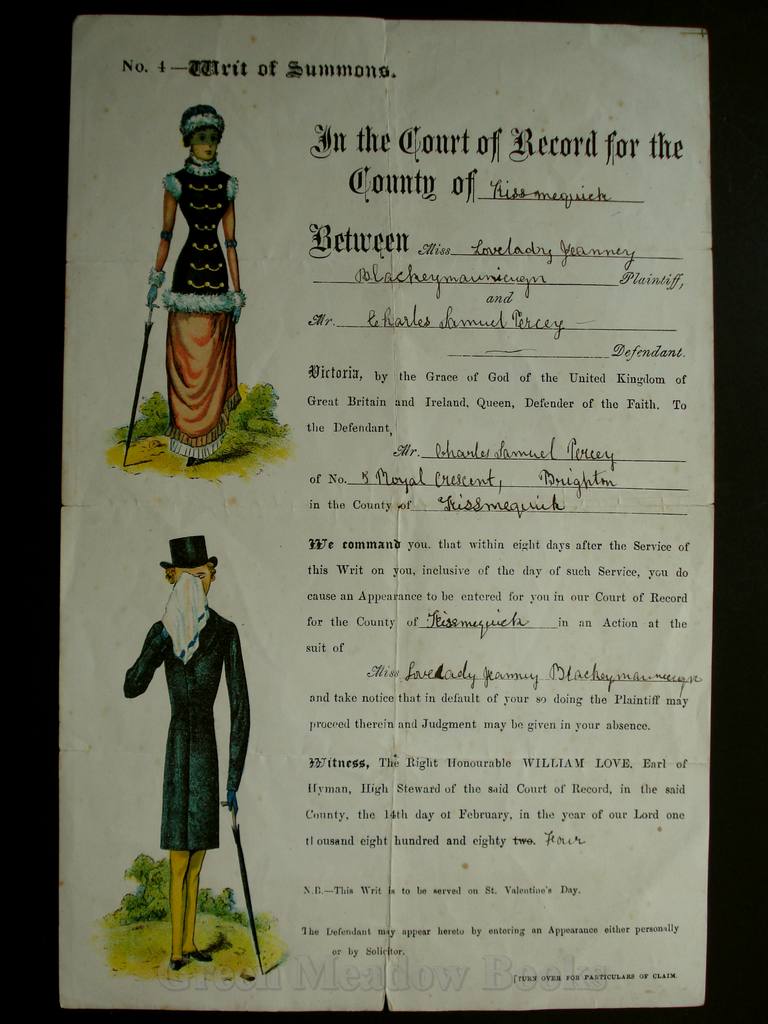 No. 4—Writ of Summons.
In the Court of Record for the
County of Kissmequick
Between Miss Lovelady Jeanney
Plaintiff,
and
Mr. Charles Samuel Percey
Defendant.
Victoria, by the Grace of God of the United Kingdom of
Great Britain and Ireland, Queen, Defender of the Faith. To
the Defendant,
Mr. Charles Samuel Percey
of No. 8 Royal Crescent, Brighton
in the County of Kissmequick
We command you, that within eight days after the Service of
this Writ on you, inclusive of the day of such Service, you do
cause an Appearance to be entered for you in our Court of Record
for the County of Kissmequick in an Action at the
suit of
Miss Lovelady Jeanney
and take notice that in default of your so doing the Plaintiff may
proceed therein and Judgment may be given in your absence.
Witness, The Right Honourable WILLIAM LOVE, Earl of
Hyman, High Steward of the said Court of Record, in the said
County, the 14th day of February, in the year of our Lord one
thousand eight hundred and eighty two. Four
N.B.—This Writ is to be served on St. Valentine's Day.
The Defendant may appear hereto by entering an Appearance either personally
or by Solicitor.
[TURN OVER FOR PARTICULARS OF CLAIM.
Green Meadow Books